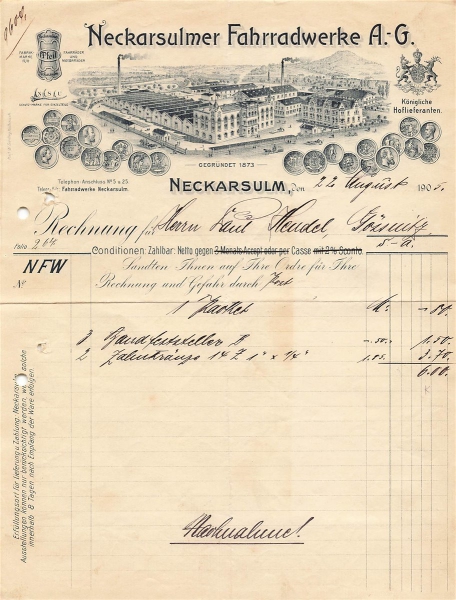 Neckarsulmer Fahrradwerke A.-G.
FABRIK-MARKE FÜR
Pfeil
FAHRRÄDER UND
Königliche
Hoflieferanten.
GEGRÜNDET 1873
Telephon-Anschluss No 5 u 25.
Telegr. Adr.: Fahrradwerke Neckarsulm.
NECKARSULM, den 22 August 190
Rechnung für Herrn Paul Hendel, Gössnitz
folio S-A.
Conditionen: Zahlbar: Netto gegen 3 Monats-Accept oder per Casse mit 2% Sconto.
NFW
Sandten Ihnen auf Ihre Ordre für Ihre
No
Rechnung und Gefahr durch Post
1 Packet M. -.80.
3 II -.50. 1.50.
2 Zahnkränze 14 Z 1" x 1/4" 1.85. 3.70.
6.00.
Nachnahme!
Erfüllungsort für Lieferung u. Zahlung: Neckarsulm.
Ausstellungen können nur berücksichtigt werden, wenn solche
innerhalb 8 Tagen nach Empfang der Ware erfolgen.